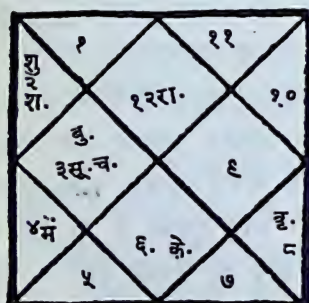 १
११
शु
२
श.
१२रा.
१०
बु.
३सू.च.
९
४मं
६. के.
बृ.
८
५
७